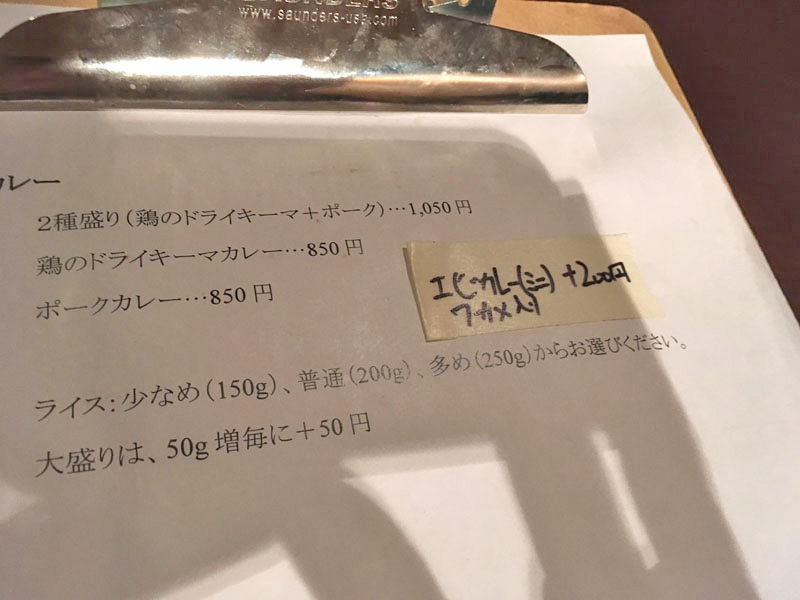 www.saunders-usa.com
カレー
２種盛り（鶏のドライキーマ＋ポーク）…1,050円
鶏のドライキーマカレー…850円
ポークカレー…850円
エビカレー(ミニ) +200円
ワカメ入り
ライス：少なめ（150g）、普通（200g）、多め（250g）からお選びください。
大盛りは、50g 増毎に＋50円